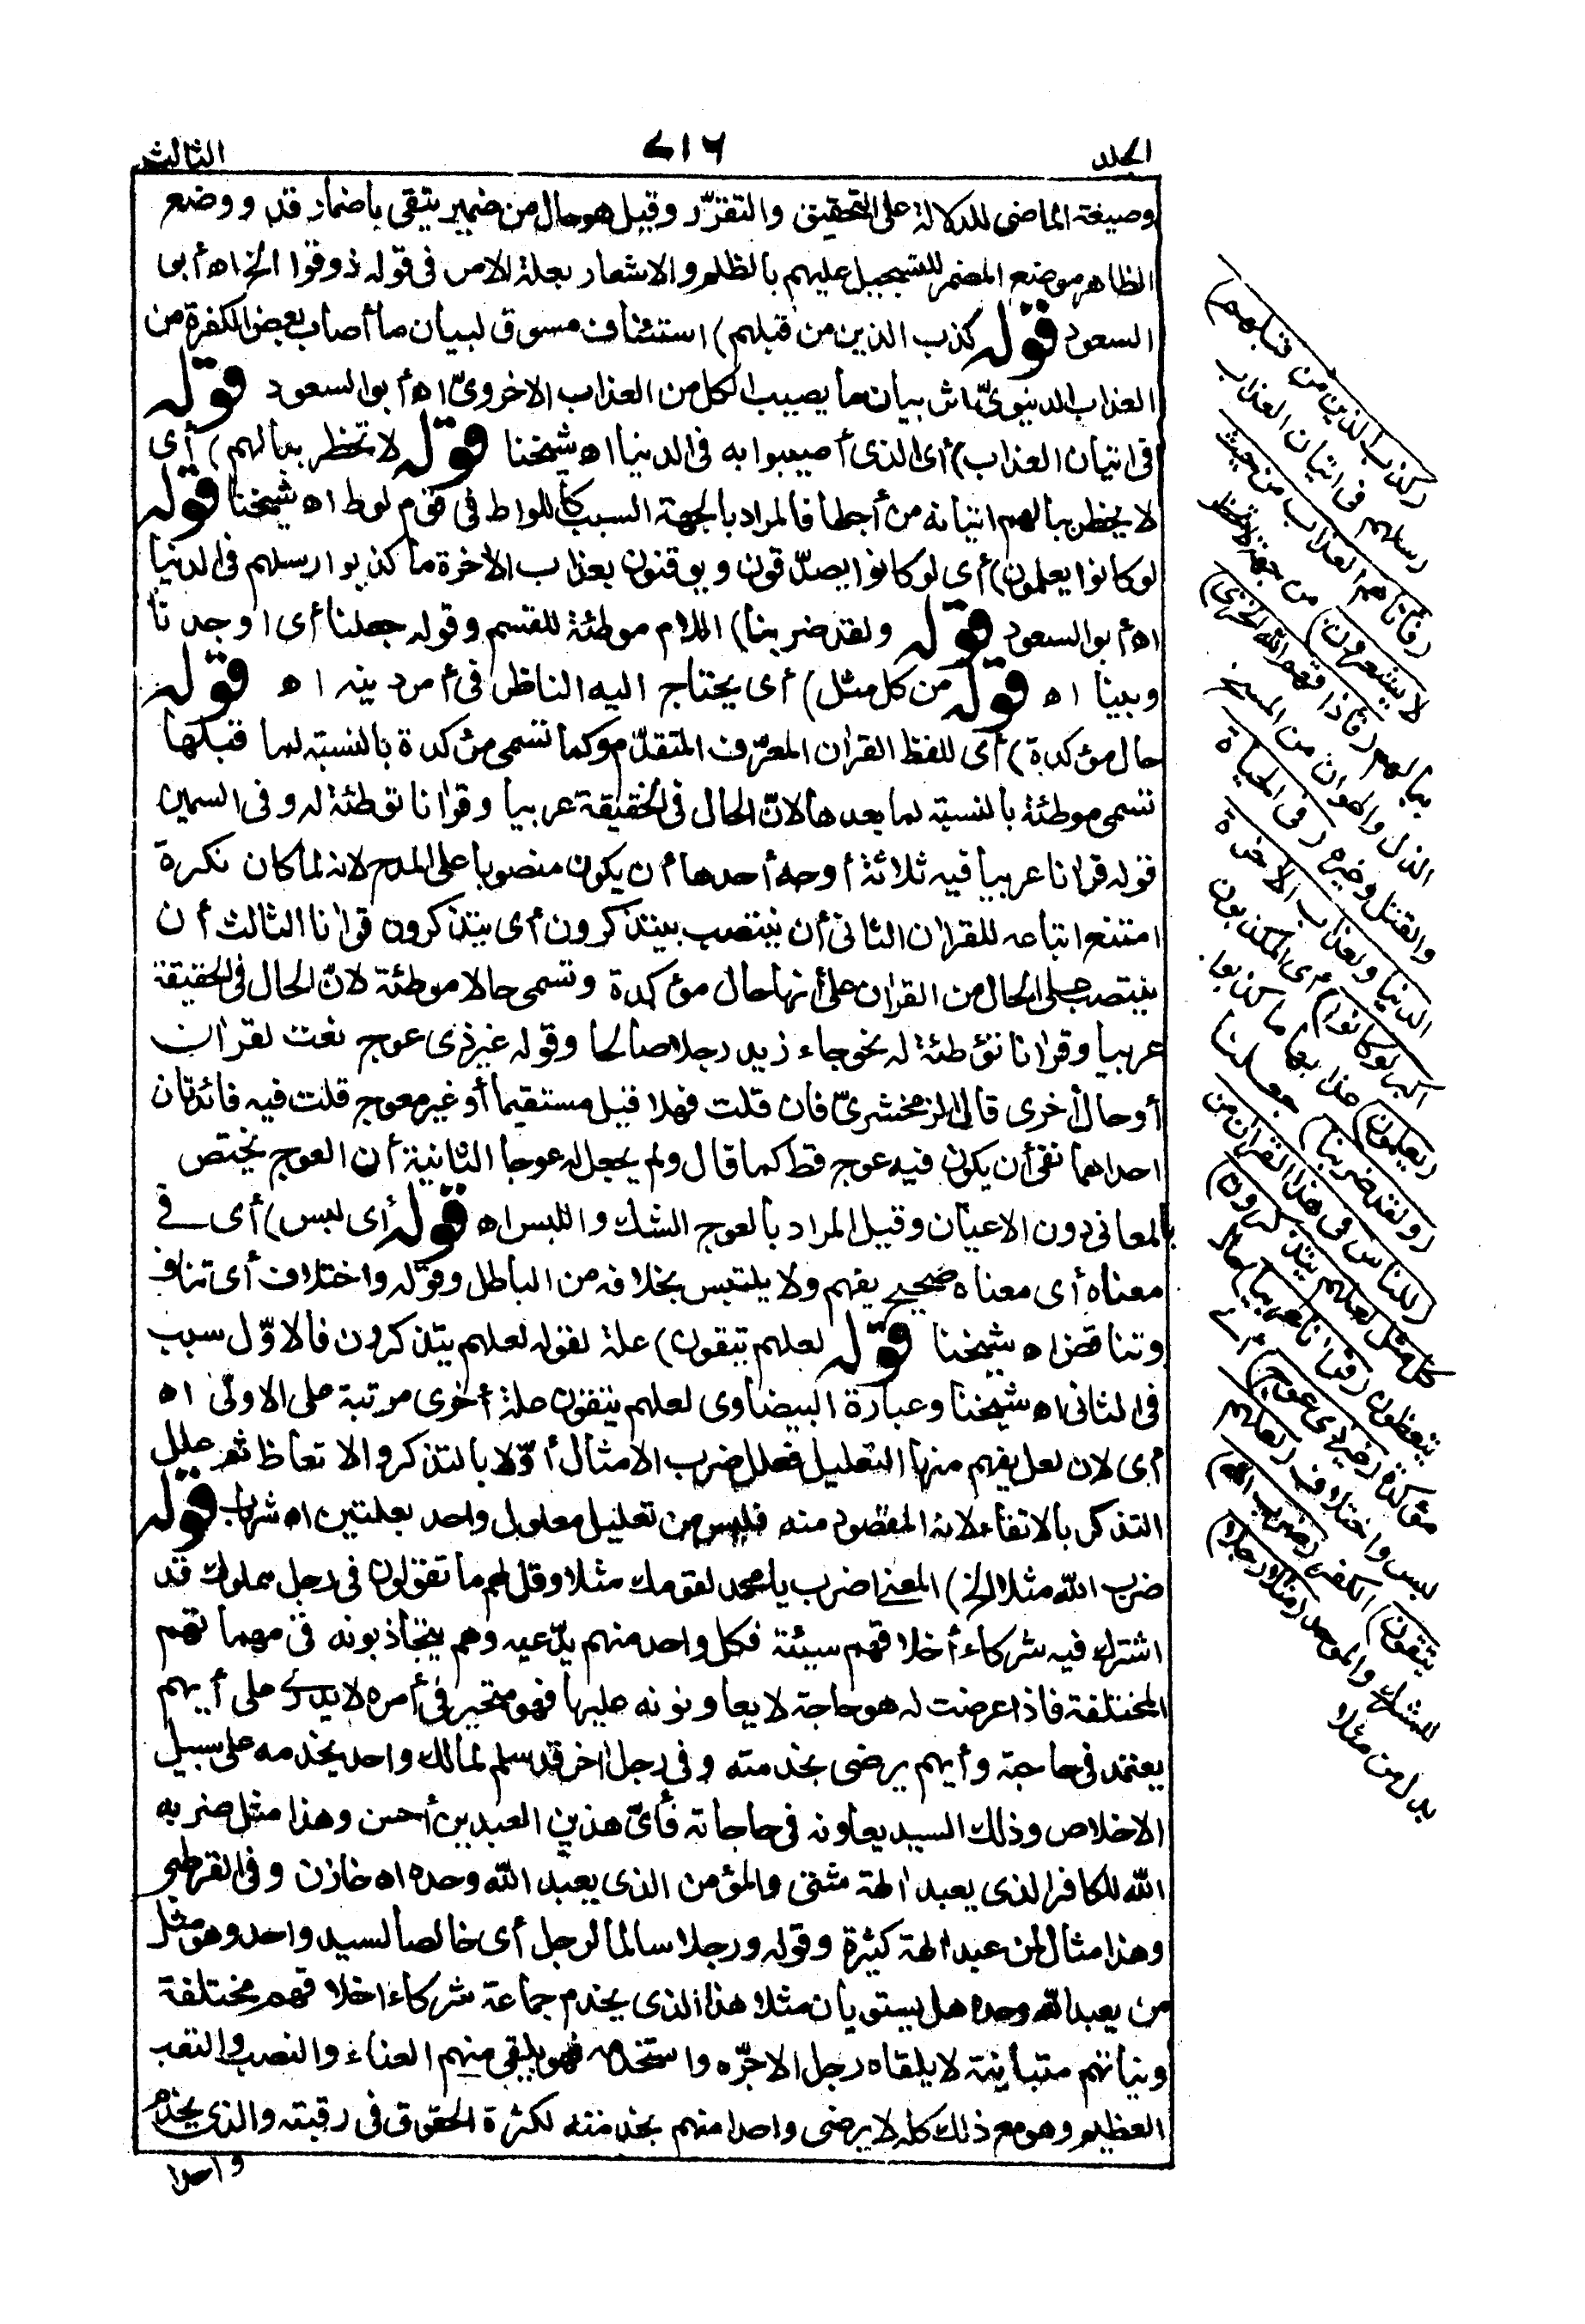 الجلد
٧١٦
الثالث
وصيغة الماضى للدلالة على التحقيق والتقرّر وقيل هو حال من ضمير يتقى باضمار قد ووضع
الظاهر موضع المضمر للتسجيل عليهم بالظلم والاشعار بعلة الامر فى قوله ذوقوا الخ اه أبى
السعود قوله كذب الذين من قبلهم) استئناف مسوق لبيان ما أصاب بعض الكفرة من
العذاب الدنيوىّ اثر بيان ما يصيب الكل من العذاب الاخروىّ اه أبو السعود قوله
فى اتيان العذاب) أى الذى أصيبوا به فى الدنيا اه شيخنا قوله لا تخطر ببالهم) أى
لا يخطر ببالهم اتيانه من أجلها فالمراد بالجهة السبب كاللواط فى قوم لوط اه شيخنا قوله
لو كانوا يعلمون) أى لو كانوا يصدّقون ويوقنون بعذاب الاخرة ما كذبوا رسلهم فى الدنيا
اه أبو السعود قوله ولقد ضربنا) اللام موطئة للقسم وقوله جعلنا أى اوجدنا
وبينا اه قوله من كل مثل) أى يحتاج اليه الناظر فى أمر دينه اه قوله
حال مؤكدة) أى للفظ القران المعرّف المتقدّم وكما تسمى مؤكدة بالنسبة لما قبلها
تسمى موطئة بالنسبة لما بعدها لانّ الحال فى الحقيقة عربيا وقرانا توطئة له وفى السمين
قوله قرانا عربيا فيه ثلاثة أوجه أحدها أن يكون منصوبا على المدح لانه لما كان نكرة
امتنع اتباعه للقران الثانى أن ينتصب بيتذكرون أى يتذكرون قرانا الثالث أن
ينتصب على الحال من القران على أنها حال مؤكدة وتسمى حالا موطئة لانّ الحال فى الحقيقة
عربيا وقرانا توطئة له نحو جاء زيد رجلا صالحا وقوله غير ذى عوج نعت لقران
أو حال أخرى قال الزمخشرىّ فان قلت فهلا قيل مستقيما أو غير معوج قلت فيه فائدتان
احداهما نفى أن يكون فيه عوج قط كما قال ولم يجعل له عوجا الثانية أن العوج يختص
بالمعانى دون الاعيان وقيل المراد بالعوج الشك واللبس اه قوله أى لبس) أى فى
معناه أى معناه صحيح يفهم ولا يلتبس بخلافه من الباطل وقوله واختلاف أى تناف
وتناقض اه شيخنا قوله لعلهم يتقون) علة لقوله لعلهم يتذكرون فالاوّل سبب
فى الثانى اه شيخنا وعبارة البيضاوى لعلهم يتقون علة أخرى مرتبة على الاولى اه
أى لان لعل يفهم منها التعليل فعلل ضرب الامثال أوّلا بالتذكر والاتعاظ ثم علل
التذكر بالاتقاء لانه المقصود منه فليس من تعليل معلول واحد بعلتين اه شهاب قوله
ضرب الله مثلا الخ) المعنى اضرب يا محمد لقومك مثلا وقل لهم ما تقولون فى رجل مملوك قد
اشترك فيه شركاء أخلاقهم سيئة فكل واحد منهم يدّعيه وهم يتجاذبونه فى مهماتهم
المختلفة فاذا عرضت له هو حاجة لا يعاونونه عليها فهو متحير فى أمره لا يدرى على أيهم
يعتمد فى حاجة وأيهم يرضى بخدمته وفى رجل اخر قد سلم لمالك واحد يخدمه على سبيل
الاخلاص وذلك السيد يعاونه فى حاجاته فأىّ هذين العبدين أحسن وهذا مثل ضربه
الله للكافر الذى يعبد الهة شتى والمؤمن الذى يعبد الله وحده اه خازن وفى القرطبى
وهذا مثال لمن عبد الهة كثيرة وقوله ورجلا سالما لرجل أى خالصا لسيد واحد وهو مثل
من يعبد الله وحده هل يستويان مثلا هذا الذى يخدم جماعة شركاء اخلاقهم مختلفة
ونياتهم متباينة لا يلقاه رجل الا جرّه واستخدمه فهو يلقى منهم العناء والنصب والتعب
العظيم وهو مع ذلك كله لا يرضى واحدا منهم بخدمته لكثرة الحقوق فى رقبته والذى يخدم
واحدا
(كذب الذين من قبلهم)
رسلهم فى اتيان العذاب
(فأتاهم العذاب من حيث
لا يشعرون) من جهة لا تخطر
ببالهم (فأذاقهم الله الخزى)
الذل والهوان من المسخ
والقتل وغيره (فى الحياة
الدنيا ولعذاب الاخرة
اكبر لو كانوا) أى المكذبون
(يعلمون) عذابها ما كذبوا
(ولقد ضربنا) جعلنا
(للناس فى هذا القران من
كل مثل لعلهم يتذكرون)
يتعظون (قرانا عربيا) حال
مؤكدة (غير ذى عوج) أى
لبس واختلاف (لعلهم
يتقون) الكفر (ضرب الله)
للمشرك والموحد (مثلا رجلا)
بدل من مثلا